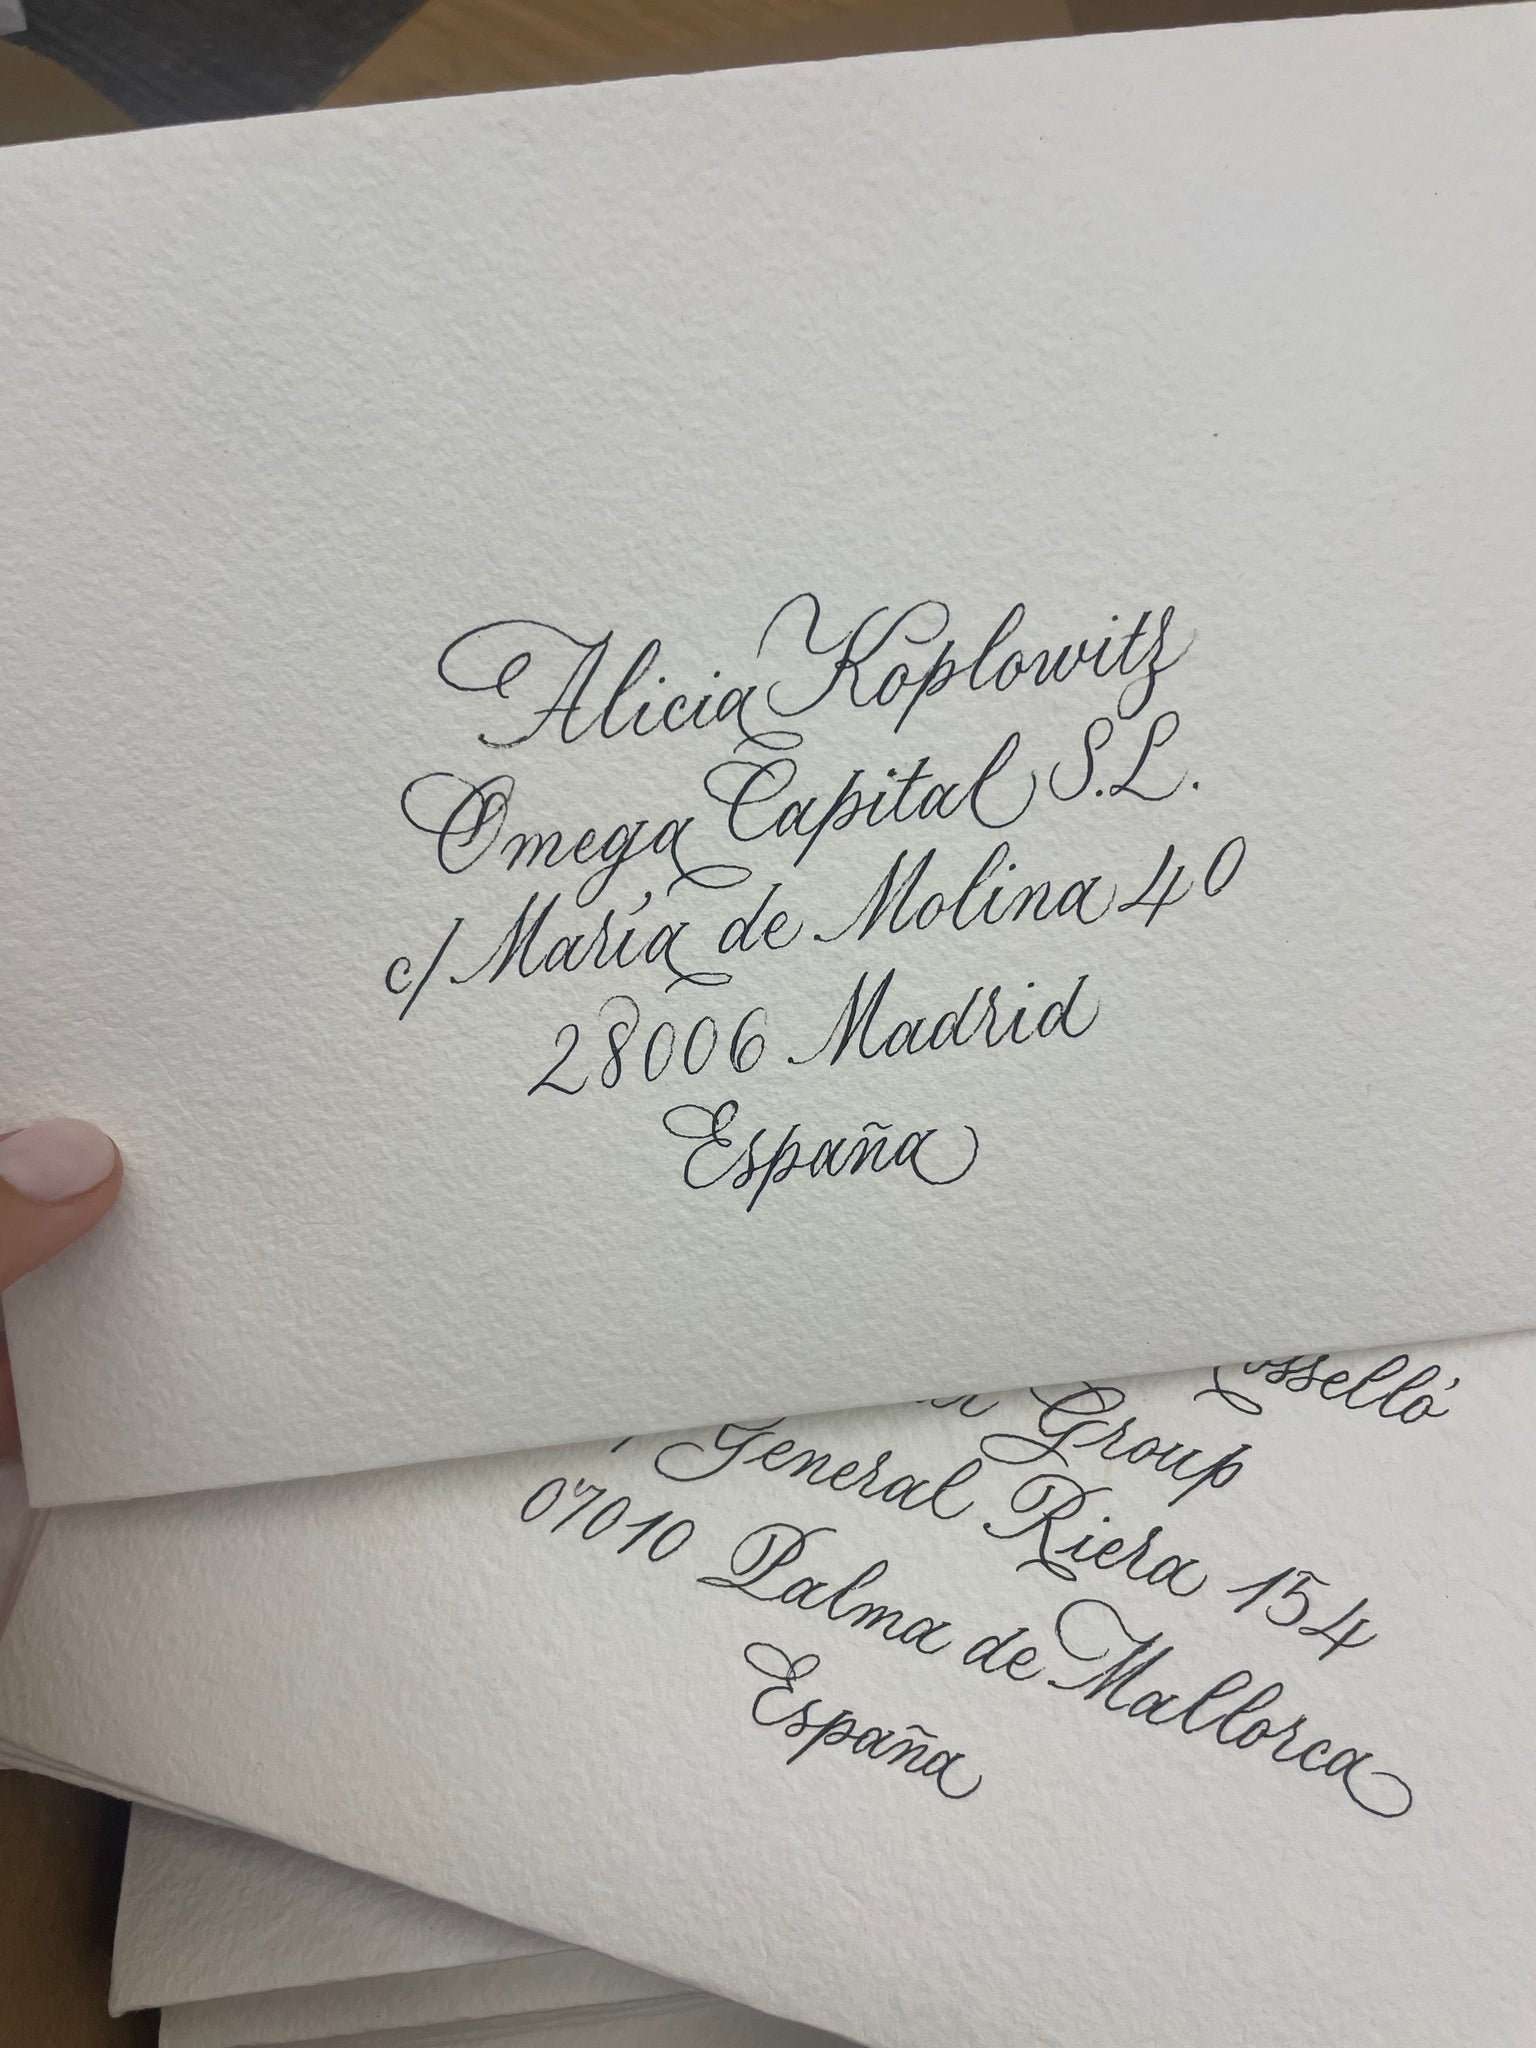 Alicia Koplowitz
Omega Capital S.L.
c/ María de Molina 40
28006 Madrid
España
Group
General Riera 154
07010 Palma de Mallorca
España